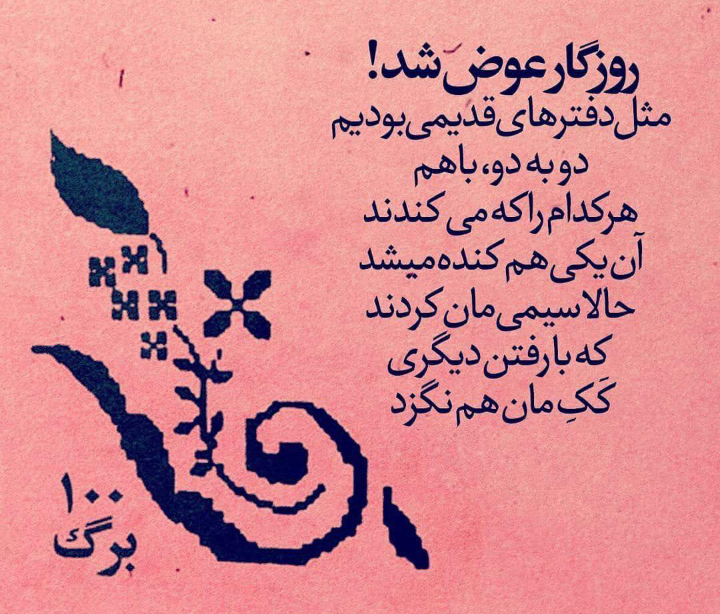 روزگار عوض شد!
مثل دفترهای قدیمی بودیم
دو به دو، باهم
هرکدام را که می کندند
آن یکی هم کنده میشد
حالا سیمی مان کردند
که با رفتن دیگری
کَکِ مان هم نگزد
۱۰۰
برگ